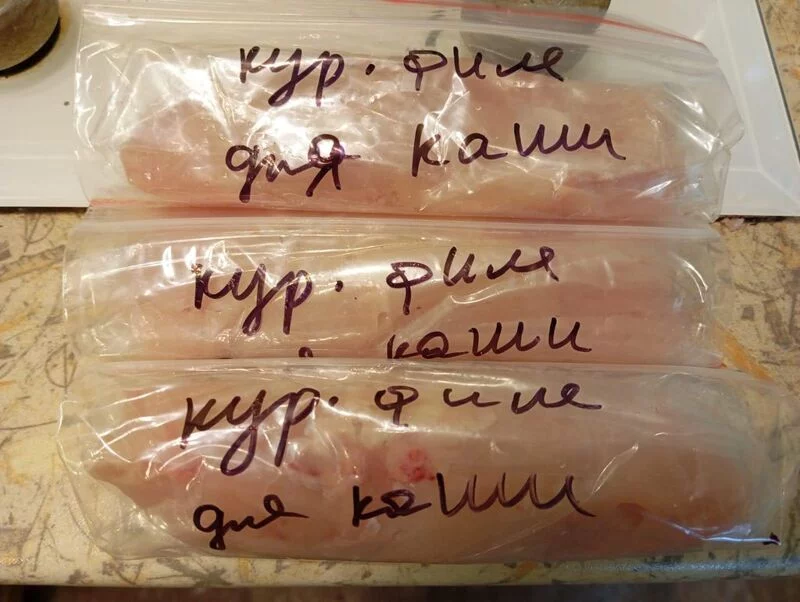 кур. филе
для каши
кур. филе
каши
кур. филе
для каши